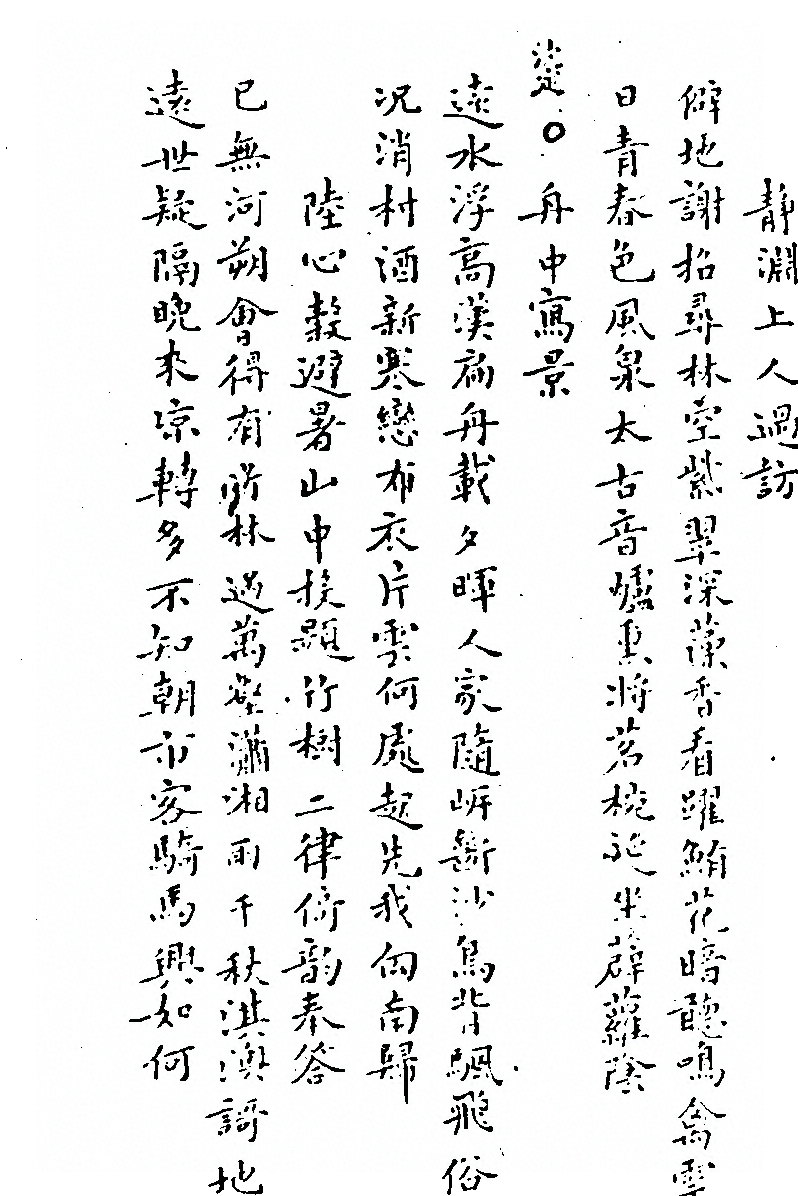 靜淵上人過訪
僻地謝招尋林空紫翠深藻香看躍鮪花暗聽鳴禽雪
日青春色風泉太古音爐熏將茗椀延坐薜蘿陰
舟中寫景
遠水浮高漢扁舟載夕暉人家隨岍斷沙鳥背颿飛俗
况消村酒新寒戀布衣片雲何處起先我向南歸
陸心穀避暑山中投題竹樹二律倚韵奉答
已無河朔會得有竹林過萬壑瀟湘雨千秋淇澳謌地
遠世疑隔晚來凉轉多不知朝市客騎馬興如何